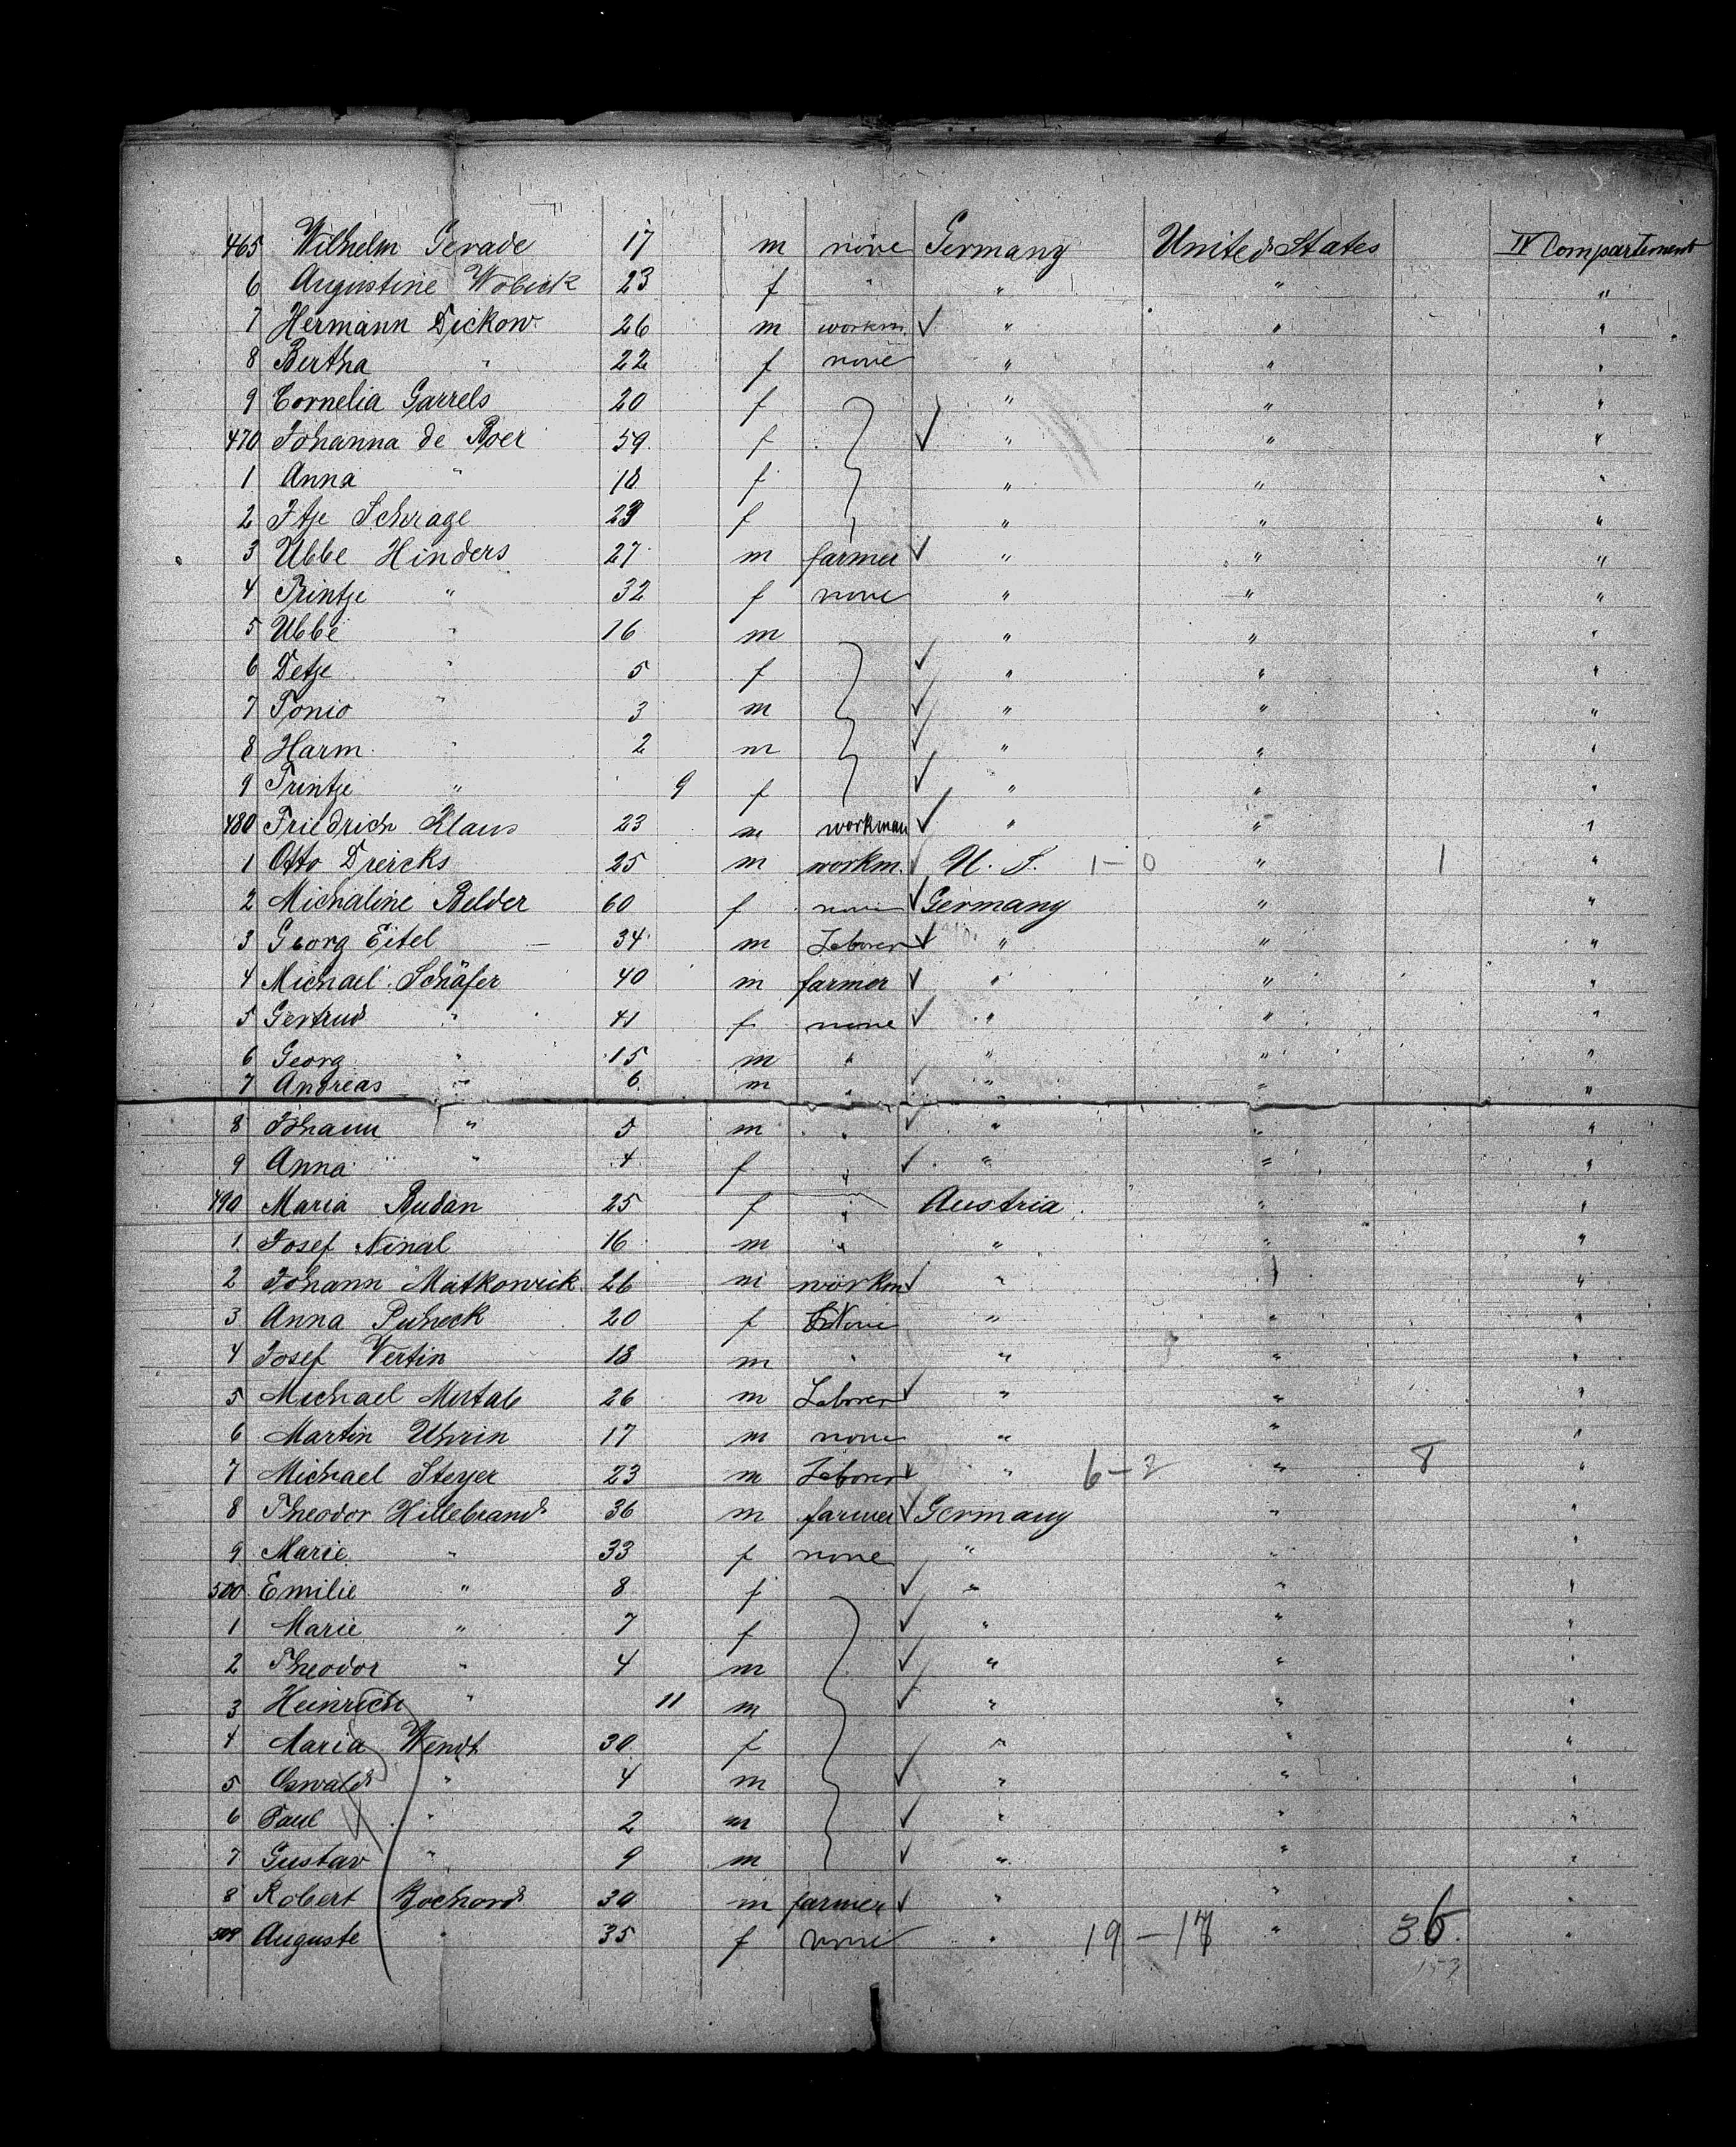 465 Wilhelm Gerade 17 m none Germany United States IV Compartement
6 Augustine Wobick 23 f " " " "
7 Hermann Dickow 26 m workm. ✓ " " "
8 Bertha " 22 f none " " "
9 Cornelia Garrels 20 f " " "
470 Johanna de Boer 59 f ✓ " " "
1 Anna " 18 f " " "
2 Itje Schrage 29 f " " "
3 Ubbe Hinders 27 m farmer ✓ " " "
4 Trintje " 32 f none " " "
5 Ubbe " 16 m " " "
6 Detje " 5 f ✓ " " "
7 Tonio " 3 m ✓ " " "
8 Harm " 2 m ✓ " " "
9 Trintje " 9 f ✓ " " "
480 Friedrich Klaus 23 m workman ✓ " " "
1 Otto Driercks 25 m workm. ✓ U. S. 1-0 " 1 "
2 Michaline Belder 60 f none ✓ Germany " "
3 Georg Eitel 34 m Laborer ✓ " " "
4 Michael Schäfer 40 m farmer ✓ " " "
5 Gertrud " 41 f none ✓ " " "
6 Georg " 15 m " " " "
7 Andreas " 6 m " ✓ " " "
8 Johann " 5 m " ✓ " " "
9 Anna " 4 f " ✓ " " "
490 Maria Budan 25 f " Austria " "
1 Josef Ninal 16 m " " " "
2 Johann Matkowick 26 m workm ✓ " " "
3 Anna Puheck 20 f None " " "
4 Josef Vertin 18 m " " " "
5 Michael Mutab 26 m Laborer ✓ " " "
6 Martin Uhrin 17 m none " " "
7 Michael Steyer 23 m Laborer ✓ " 6-2 " 8 "
8 Theodor Hillebrand 36 m farmer ✓ Germany " "
9 Marie " 33 f none " " "
500 Emilie " 8 f ✓ " " "
1 Marie " 7 f ✓ " " "
2 Theodor " 4 m ✓ " " "
3 Heinrich " 11 m ✓ " " "
4 Maria Wendt 30 f " " "
5 Oswald " 4 m ✓ " " "
6 Paul " 2 m ✓ " " "
7 Gustav " 9 m ✓ " " "
8 Robert Bochard 30 m farmer ✓ " " "
509 Auguste " 35 f none " 19-17 " 36. "